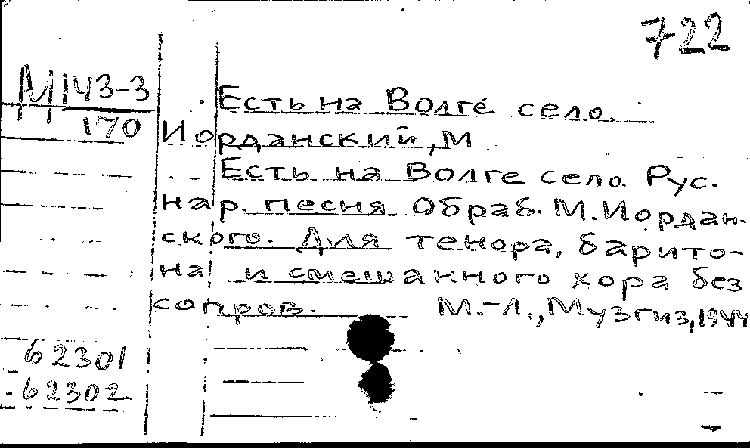 722
М143-3
170
Есть на Волге село.
Иорданский, М
Есть на Волге село. Рус.
нар. песня. Обраб. М. Иордан-
ского. Для тенора, барито-
на и смешанного хора без
сопров. М.-Л., Музгиз, 1944
62301
62302